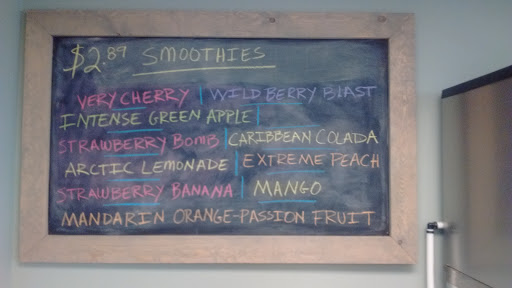 $2.89 SMOOTHIES
VERY CHERRY | WILD BERRY BLAST
INTENSE GREEN APPLE |
STRAWBERRY BOMB | CARIBBEAN COLADA
ARCTIC LEMONADE | EXTREME PEACH
STRAWBERRY BANANA | MANGO
MANDARIN ORANGE-PASSION FRUIT